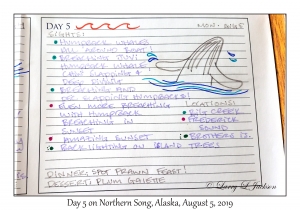 DAY 5
MON - 8/5/19
SIGHTS!
HUMPBACK WHALES
ALL AROUND BOAT!
BREACHING
HUMPBACK WHALES
BREACHING AND
HUMPBACKS!
EVEN MORE BREACHING
WITH HUMPBACK
BREACHING AT
SUNSET
AMAZING SUNSET
LIGHTING ON ISLAND TREES
LOCATIONS:
BIG CREEK
FREDERICK
SOUND
BROTHERS IS.
DINNER: SPOT PRAWN FEAST!
DESSERT: PLUM GALETTE
© Larry L. Jackson
Day 5 on Northern Song, Alaska, August 5, 2019